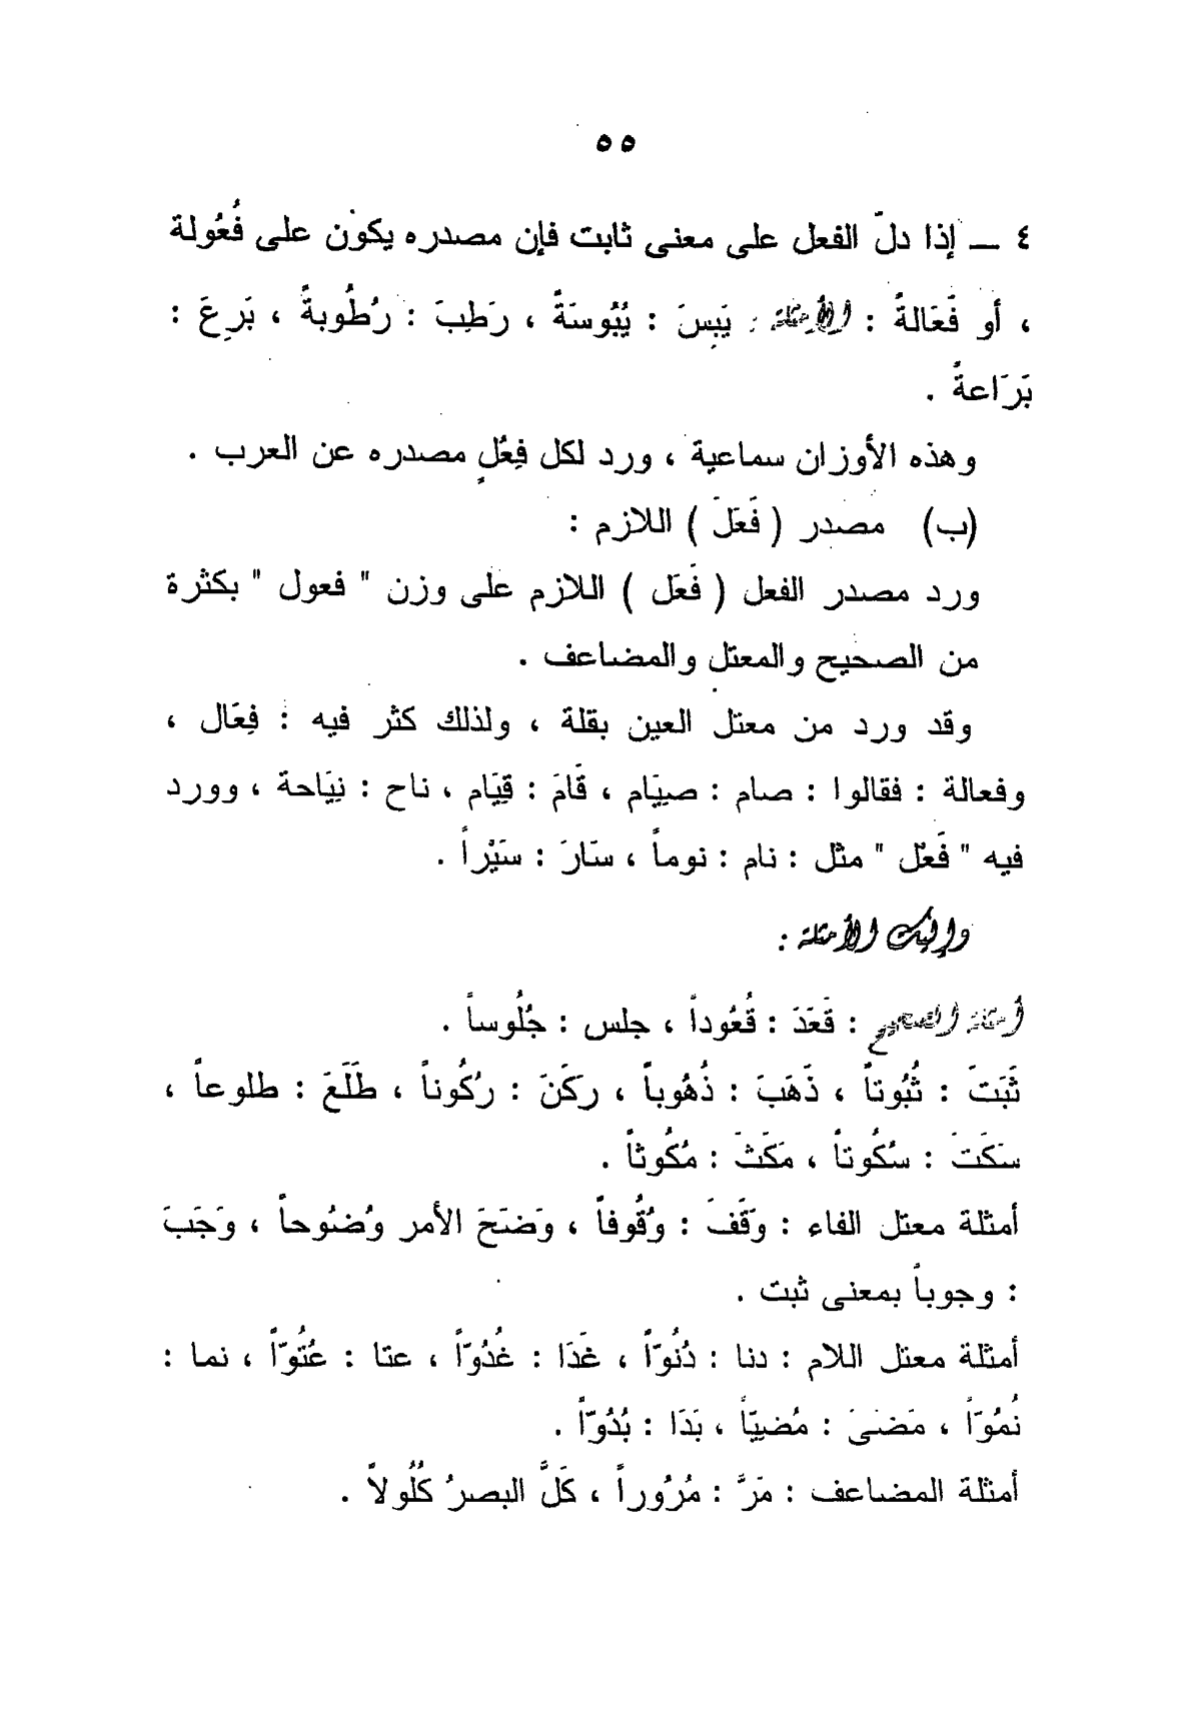 ٥٥
٤ — إذا دلّ الفعل على معنى ثابت فإن مصدره يكون على فُعُولة
، أو فَعَالةً : الأمثلة : يَبِسَ : يُبُوسَةً ، رَطِبَ : رُطُوبةً ، بَرِعَ :
بَرَاعةً .
وهذه الأوزان سماعية ، ورد لكل فِعْلٍ مصدره عن العرب .
(ب) مصدر ( فَعَلَ ) اللازم :
ورد مصدر الفعل ( فَعَل ) اللازم على وزن " فعول " بكثرة
من الصحيح والمعتل والمضاعف .
وقد ورد من معتل العين بقلة ، ولذلك كثر فيه : فِعَال ،
وفعالة : فقالوا : صام : صِيَام ، قَامَ : قِيَام ، ناح : نِيَاحة ، وورد
فيه " فَعْل " مثل : نام : نوماً ، سَارَ : سَيْراً .
وإليك الأمثلة :
أمثلة الصحيح : قَعَدَ : قُعُوداً ، جلس : جُلُوساً .
ثَبَتَ : ثُبُوتاً ، ذَهَبَ : ذُهُوباً ، ركَنَ : رُكُوناً ، طَلَعَ : طلوعاً ،
سَكَتَ : سُكُوتاً ، مَكَثَ : مُكُوثاً .
أمثلة معتل الفاء : وَقَفَ : وُقُوفاً ، وَضَحَ الأمر وُضُوحاً ، وَجَبَ
: وجوباً بمعنى ثبت .
أمثلة معتل اللام : دنا : دُنُوّاً ، غَدَا : غُدُوّاً ، عتا : عُتُوّاً ، نما :
نُمُوّاً ، مَضَىَ : مُضِيّاً ، بَدَا : بُدُوّاً .
أمثلة المضاعف : مَرَّ : مُرُوراً ، كَلَّ البصرُ كُلُولاً .